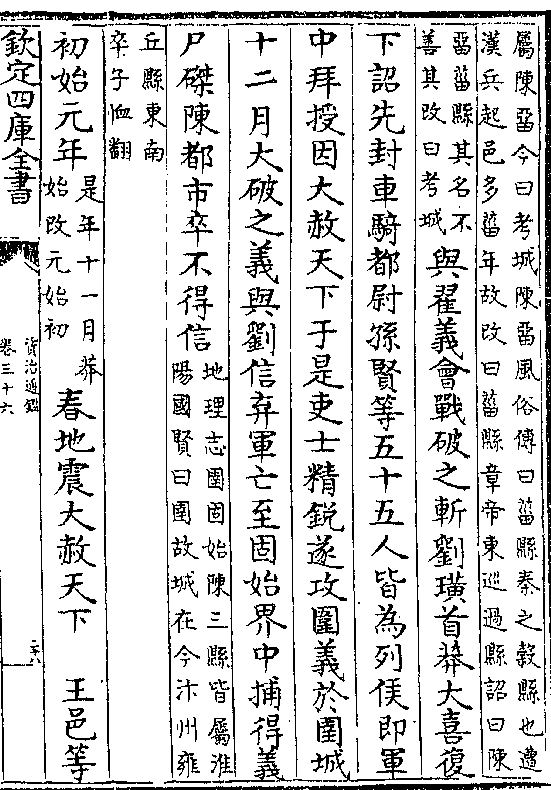 屬陳畱今曰考城陳畱風俗傳曰葘縣秦之穀縣也遭
漢兵起邑多葘年故改曰葘縣章帝東巡過縣詔曰陳
畱葘縣其名不
善其改曰考城
與翟義會戰破之斬劉璜首莽大喜復
下詔先封車騎都尉孫賢等五十五人皆為列侯即軍
中拜授因大赦天下于是吏士精銳遂攻圍義於圉城
十二月大破之義與劉信弃軍亡至固始界中捕得義
尸磔陳都市卒不得信
地理志圉固始陳三縣皆屬淮
陽國賢曰圉故城在今汴州雍
丘縣東南
卒子恤翻
初始元年
是年十一月莽
始改元始初
春地震大赦天下 王邑等
欽定四庫全書
資治通鑑
卷三十六